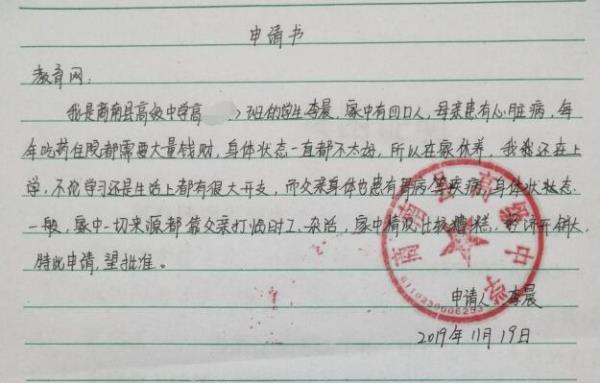 申请书
教育网:
我是商南县高级中学高 班的学生李晨,家中有四口人,母亲患有心脏病,每
年吃药住院都需要大量钱财,身体状态一直都不太好,所以在家休养。我我还在上
学,不论学习还是生活上都有很大开支,而父亲身体也患有 病等疾病,身体状态
一般,家中一切来源都靠父亲打临时工、杂活,家中情况比较糟糕, 开销大,
特此申请,望批准。
申请人:李晨
2019年11月19日
商南县高级中学